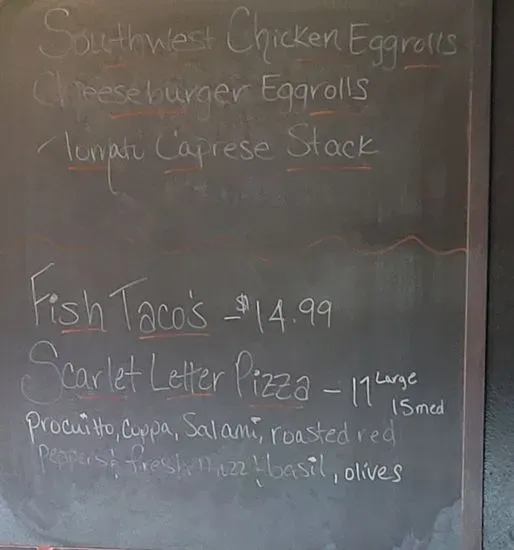 Southwest Chicken Eggrolls
Cheeseburger Eggrolls
Caprese Stack
Fish Taco's - $14.99
Scarlet Letter Pizza - 17 Large
15 med
Procuitto, Coppa, Salami, roasted red
Peppers & fresh mozz & basil, olives